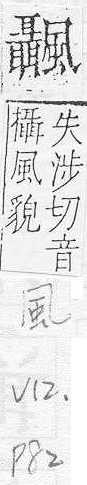 失涉切音
攝風貌
風
V12.
P82